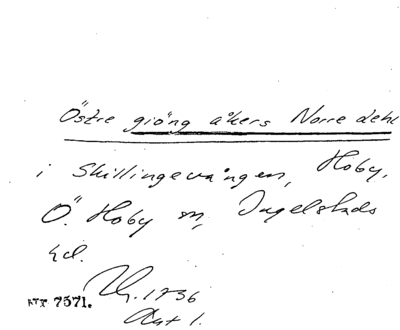 Östre giöng åkers Norre dehl
i Skillingevången, Hoby,
Ö. Hoby sn, Ingelstads
hd.
Åkt 1.
ATT. 7571.
1756